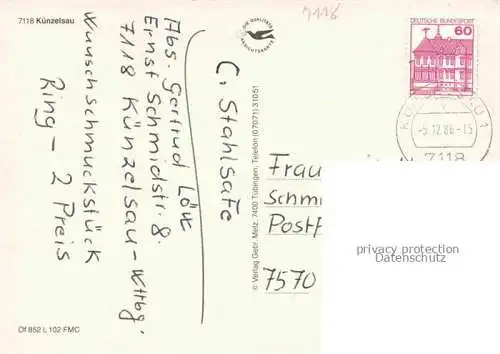 7118 Künzelsau
4116
DIE QUALITÄTS
ANSICHTSKARTE
DEUTSCHE BUNDESPOST
60
-5.12.86-15
7118
C. Stahlsafe
Abs. Gertrud Lötz
Ernst Schmidstr. 8.
7118 Künzelsau - Wttbg.
Wunschschmuckstück
Ring - 2 Preis
© Verlag Gebr. Metz, 7400 Tübingen, Telefon (07071) 31051
Frau
Schm
Postf
7570
privacy protection
Datenschutz
Of 852 L 102 FMC